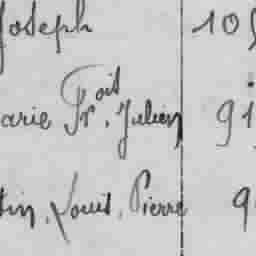 Joseph 105
arie Frçoit, Julien 91
tin, Louis, Pierre 9